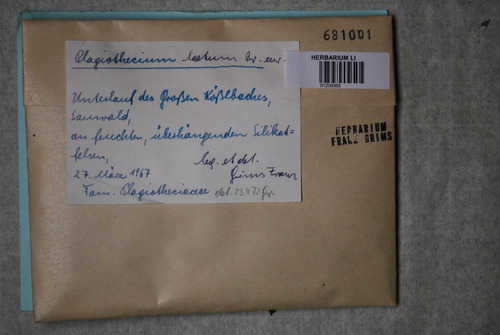 681001
Plagiothecium laetum Br. eur.
HERBARIUM LI
Unterlauf des großen Kößlbaches,
Sauwald,
an feuchten, überhängenden Silikat=
felsen,
leg. et det.
27. März 1967
Grims Franz
Fam. Plagiotheciaceae
det. 23.4.72 Gr.
HERBARIUM
FRANZ GRIMS